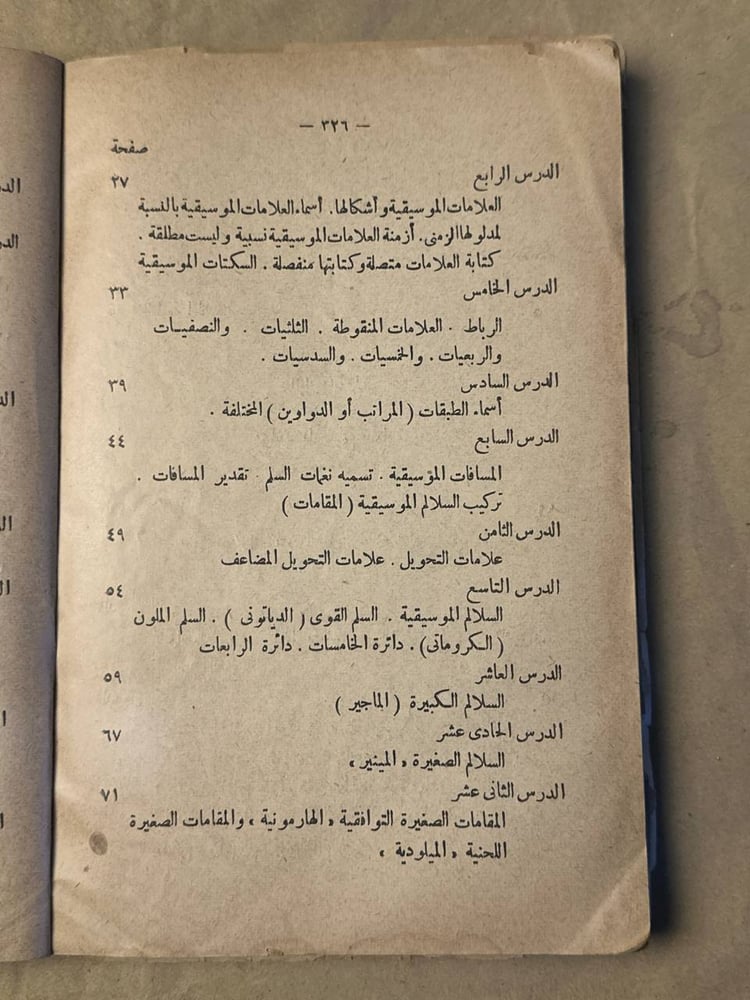 — ٣٢٦ —
صفحة
الدرس الرابع ٢٧
العلامات الموسيقية وأشكالها. أسماء العلامات الموسيقية بالنسبة
لمدلولها الزمنى. أزمنة العلامات الموسيقية نسبية وليست مطلقة .
كتابة العلامات متصلة وكتابتها منفصلة . السكتات الموسيقية
الدرس الخامس ٣٣
الرباط . العلامات المنقوطة . الثلثيات . والنصفيات
والربعيات . والخمسيات . والسدسيات .
الدرس السادس ٣٩
أسماء الطبقات ( المراتب أو الدواوين ) المختلفة .
الدرس السابع ٤٤
المسافات المؤسيقية . تسميه نغمات السلم . تقدير المسافات .
تركيب السلالم الموسيقية ( المقامات )
الدرس الثامن ٤٩
علامات التحويل . علامات التحويل المضاعف
الدرس التاسع ٥٤
السلالم الموسيقية . السلم القوى ( الدياتونى ) . السلم الملون
( الكروماتى ) . دائرة الخامسات . دائرة الرابعات
الدرس العاشر ٥٩
السلالم الكبيرة ( الماجير )
الدرس الحادى عشر ٦٧
السلالم الصغيرة « المينير »
الدرس الثانى عشر ٧١
المقامات الصغيرة التوافقية « الهارمونية » والمقامات الصغيرة
اللحنية « الميلودية »